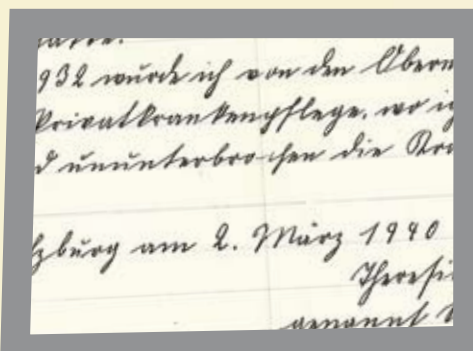 932 wurde ich von den Obern
Privatkrankenpflege, wo ig
d ununterbrochen die Kra
lzburg am 2. März 1940
Theresi
genannt